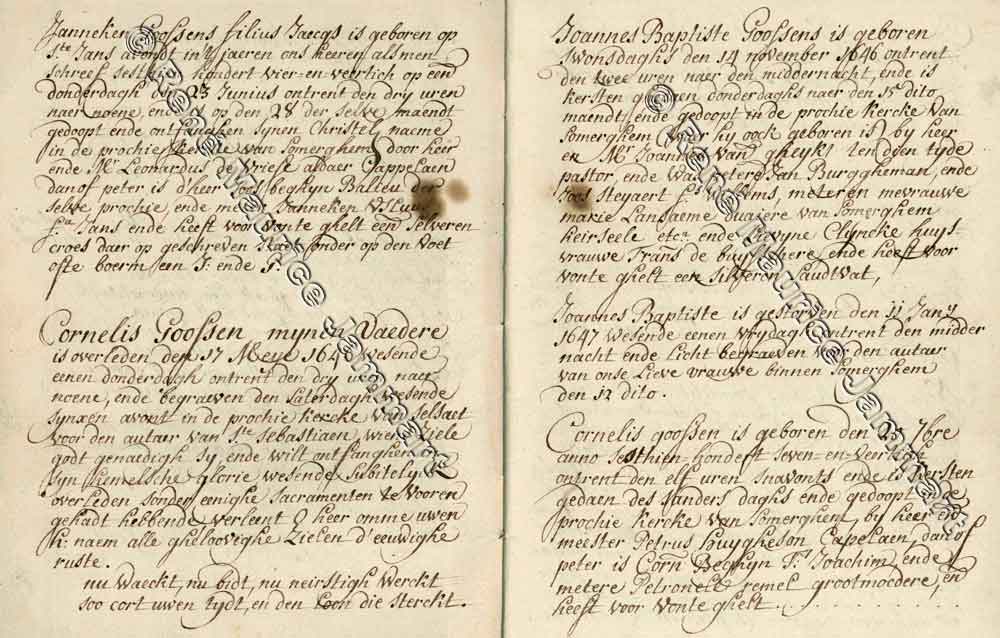 Janneken Goossens filius Jaecqs is geboren op
Ste Jans avondt in't jaeren ons heeren als men
schreef sesthien hondert vier-en-veertich op een
donderdagh den 23 Junius ontrent den dry uren
naer noene, ende op den 28 der selve maendt
gedoopt ende ontfanghen synen Christel. naeme
in de prochie kercke van Somerghem, door heer
ende Mr Leonardus de Vriese aldaer Cappelaen
danof peter is d'heer Joos beghyn Balleu der
selve prochie, ende meter Janneken
fa Jans ende heeft voor vonte ghelt een selveren
croes daer op geschreven staet onder op den voet
ofte boerm een J: ende G:
Cornelis Goossen mynen Vaedere
is overleden den 17 Meye 164 wesende
eenen donderdagh ontrent den dry uren naer
noene, ende begraeven den saterdagh wesende
synxen avont in de prochie kercke van Selsaet
voor den autaer van Ste Sebastiaen, wiens Ziele
godt genaedigh sy, ende wilt ontfanghen in
syn hemelsche glorie wesende subitelyck
overleden sonder eenighe sacramenten te vooren
gehadt hebbende, verleent o heer omme uwen
h: naem alle gheloovighe Zielen d'eeuwighe
ruste.
nu waeckt, nu bidt, nu neirstigh werckt
soo cort uwen tydt, en den loon die sterckt.
Joannes Baptiste Goossens is geboren
Swonsdaghs den 14 november 1646 ontrent
den twee uren naer den middernacht, ende is
kersten gedaen donderdaghs naer den 15 dito
maendt, ende gedoopt in de prochie kercke van
Somerghem (waer hy oock geboren is) by heer
en Mr Joannes van gheyki ten dien tyde
pastor, ende was peter Jan Burggheman, ende
Joos Steyaert fs Willems, meteren mevrauwe
marie Lansaeme duaiere van Somerghem
keirseele etcn ende Lievyne Clyncke huys
vrauwe Frans de buysschere, ende heeft voor
vonte ghelt een silveren saudtvat,
Joannes Baptiste is gestorven den 11 Jany
1647 wesende eenen vrydagh ontrent den midder
nacht ende licht begraeven voor den autaer
van onse Lieve vrauwe binnen Somerghem
den 12 dito.
Cornelis goossen is geboren den 23 7bre
anno sesthien hondert seven-en-veertich
ontrent den elf uren snavonts ende is kersten
gedaen des sanders daghs ende gedoopt in de
prochie kercke van Somerghem, by heer ende
meester Petrus Huygheson Capelaen, danof
peter is Corn Beghyn fs Joachim, ende
metere Petronelle remel grootmoedere, en
heeft voor vonte ghelt . . . . . . . . . .
© René Maurice Janneke
© René Maurice Janneke